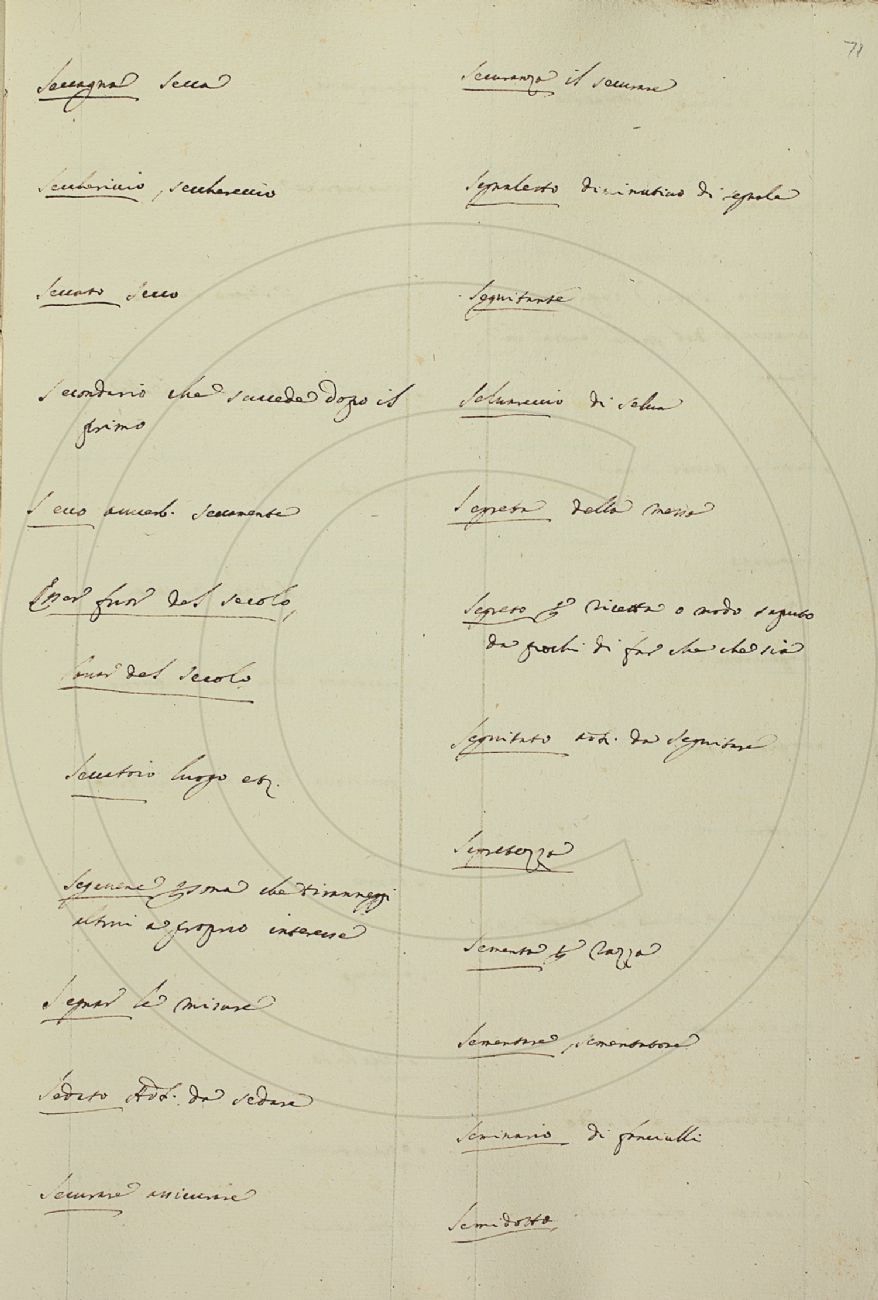 71
Seccagna Secca
Seccericcio, seccherecccio
Seccato Secco
Secondario che succede dopo il
primo
Secco avverb. seccamente
Esser fuor del secolo,
Cavar del secolo
Seccatoio luogo etc.
Segavene per persona che tiranneggi
altrui a proprio interesse
Segnar le misure
Sedato Add. da sedare
Securare assicurare
Securanza il securare
Segnaletto diminutivo di segnale
Seguitante
Selvareccio di selva
Segreta della messa
Segreto per ricetta o modo saputo
da pochi di far che che sia
Seguitato add. da Seguitare
Segretezza
Sementa per razza
Sementare, sementatore
Seminario di fanciulli
Semidotto,